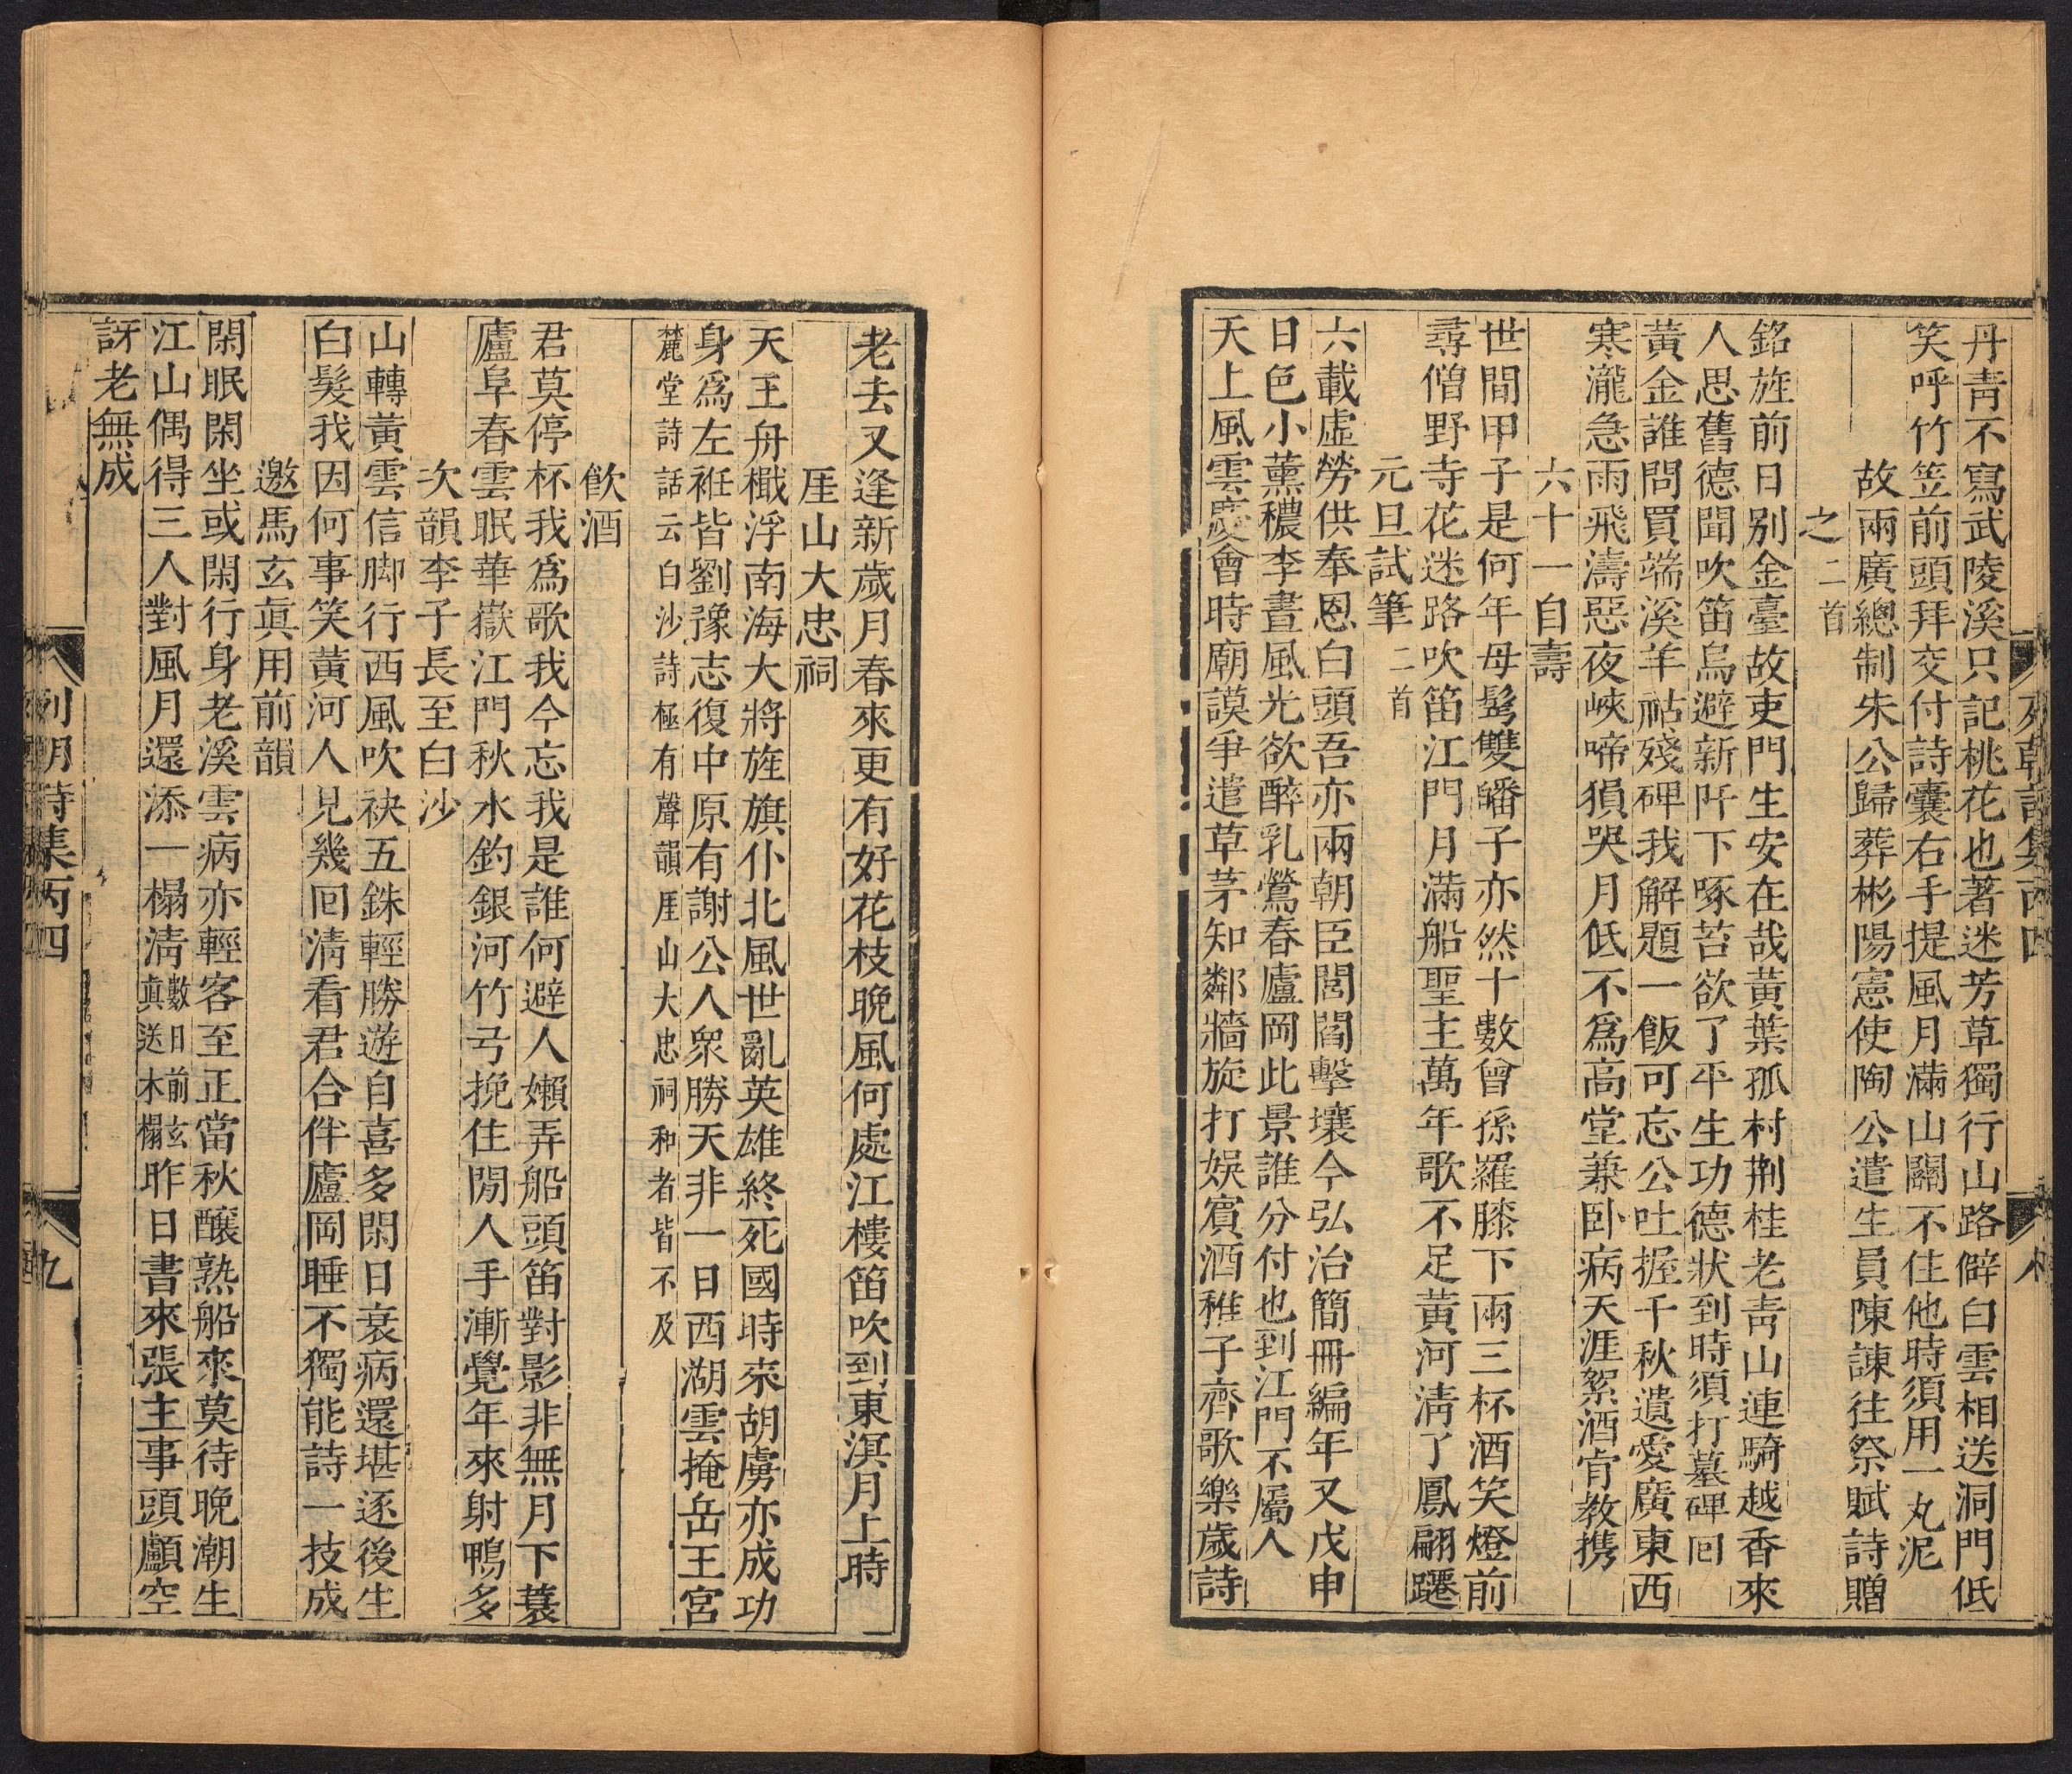 丹靑不寫武陵溪只記桃花也著迷芳草獨行山路僻白雲相送洞門低
笑呼竹笠前頭拜交付詩囊右手提風月滿山關不住他時須用一丸泥
故兩廣總制朱公歸葬彬陽憲使陶公遣生員陳諫往祭賦詩贈
之二首
銘旌前日別金臺故吏門生安在哉黃葉孤村荆桂老靑山連騎越香來
人思舊德聞吹笛烏避新阡下啄苔欲了平生功德狀到時須打墓碑囘
黃金誰問買端溪羊祜殘碑我解題一飯可忘公吐握千秋遺愛廣東西
寒瀧急雨飛濤惡夜峽啼猿哭月低不爲高堂兼卧病天涯絮酒肯教携
六十一自壽
世間甲子是何年母髩雙皤子亦然十數曾孫羅膝下兩三杯酒笑燈前
尋僧野寺花迷路吹笛江門月滿船聖主萬年歌不足黃河淸了鳳翩躚
元旦試筆二首
六載虛勞供奉恩白頭吾亦兩朝臣閭閻擊壤今弘治簡冊編年又戊申
日色小薰穠李晝風光欲醉乳鶯春廬岡此景誰分付也到江門不屬人
天上風雲慶會時廟謨爭遣草茅知鄰牆旋打娛賓酒稚子齊歌樂歲詩
老去又逢新歲月春來更有好花枝晚風何處江樓笛吹到東溟月上時
厓山大忠祠
天王舟檝浮南海大將旌旗仆北風世亂英雄終死國時來胡虜亦成功
身爲左袵皆劉豫志復中原有謝公人衆勝天非一日西湖雲掩岳王宮
麓堂詩話云白沙詩極有聲韻厓山大忠祠和者皆不及
飮酒
君莫停杯我爲歌我今忘我是誰何避人嬾弄船頭笛對影非無月下蓑
廬阜春雲眠華嶽江門秋水釣銀河竹弓挽住閒人手漸覺年來射鴨多
次韻李子長至白沙
山轉黃雲信脚行西風吹袂五銖輕勝遊自喜多閑日衰病還堪逐後生
白髮我因何事笑黃河人見幾囘淸看君合伴廬岡睡不獨能詩一技成
邀馬玄眞用前韻
閑眠閑坐或閑行身老溪雲病亦輕客至正當秋釀熟船來莫待晚潮生
江山偶得三人對風月還添一榻淸數日前玄眞送木榻昨日書來張主事頭顱空
訝老無成
列朝詩集丙四
九